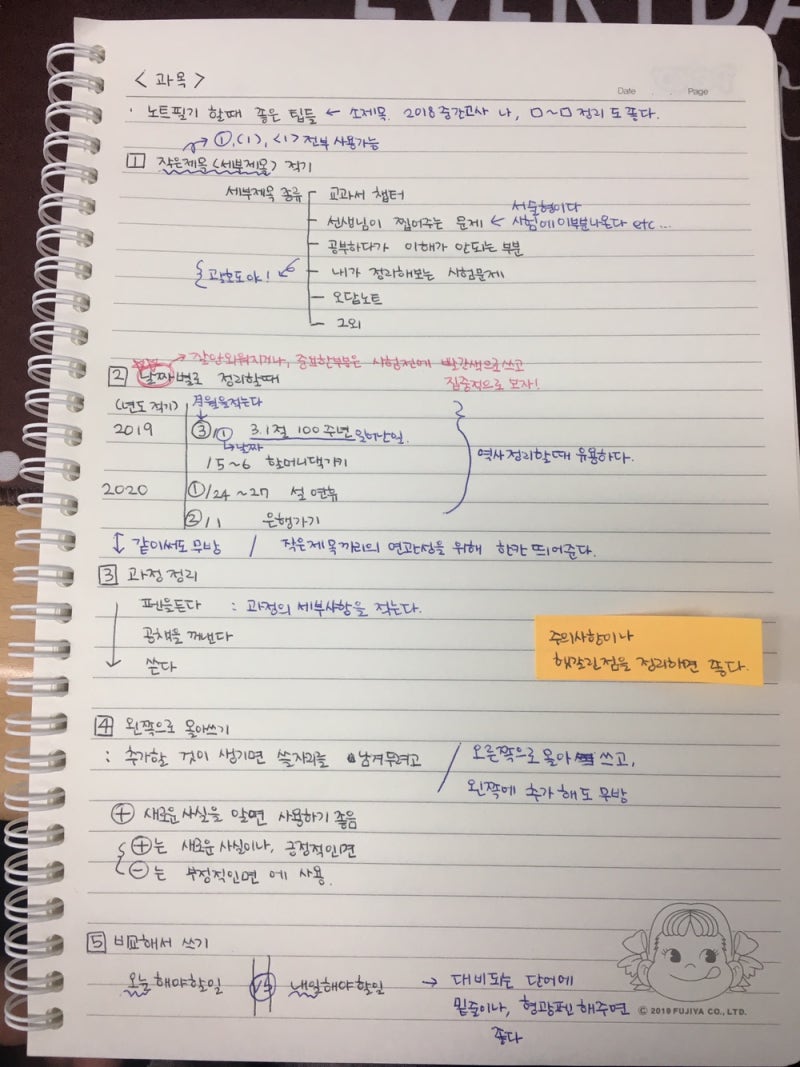 EVERYDA
< 과목 >
Date Page
· 노트필기 할때 좋은 팁들 ← 소제목. 2018 중간고사 나, □~□ 정리 도 좋다.
→ ①, (1), <1> 전부 사용가능
1 작은제목 <세부제목> 적기
세부제목 종류 교과서 챕터
서술형이다
선생님이 찝어주는 문제 ← 시험에 이부분나온다 etc ...
공부하다가 이해가 안되는 부분
괄호도야! 내가 정리해보는 시험문제
오답노트
그외
→ 잘안외워지거나, 중요한부분은 시험전에 빨간색으로쓰고
2 날짜별로 정리할때 집중적으로 보자!
(년도 적기) 月월을적는다
2019 ③/① 3.1절 100주년 일어난일.
→날짜
/5~6 할머니댁가기 역사정리할때 유용하다.
2020 ①/24 ~27 설 연휴
②/1 은행가기
↕ 같이써도 무방 / 작은제목끼리의 연관성을 위해 한칸 띄어준다.
3 과정 정리
펜을든다 : 과정의 세부사항을 적는다.
공책을 꺼낸다
쓴다
주의사항이나
헷갈린점을 정리하면 좋다.
4 왼쪽으로 몰아쓰기
: 추가할 것이 생기면 쓸자리를 남겨두려고 / 오른쪽으로 몰아 쓰고,
왼쪽에 추가 해도 무방
⊕ 새로운사실을 알면 사용하기 좋음
⊕는 새로운 사실이나, 긍정적인면
⊖는 부정적인면 에 사용.
5 비교해서 쓰기
오늘해야할일 VS 내일해야할일 → 대비되는 단어에
밑줄이나, 형광펜 해주면
좋다
© 2019 FUJIYA CO., LTD.